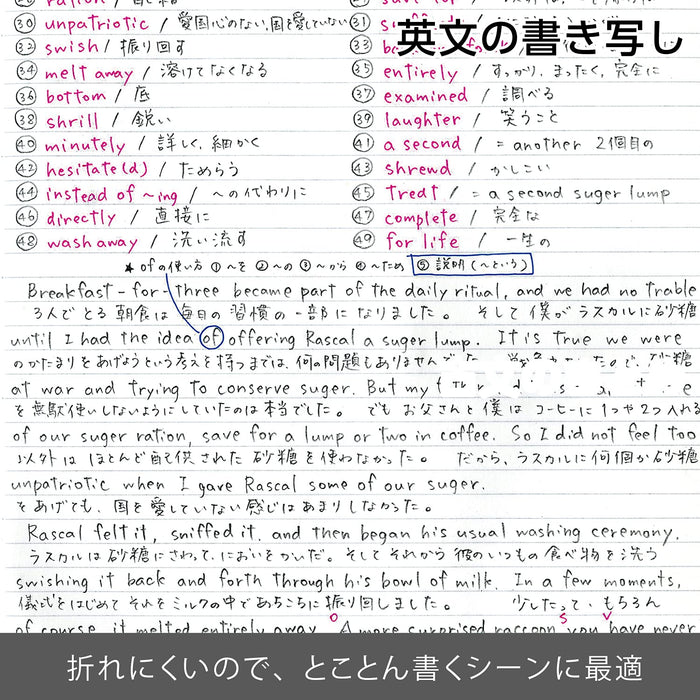 英文の書き写し
㉚ unpatriotic / 愛国心のない、国を愛していない
㉛
㉜ swish / 振り回す
㉝
㉞ melt away / 溶けてなくなる
㉟ entirely / すっかり、まったく、完全に
㊱ bottom / 底
㊲ examined / 調べる
㊳ shrill / 鋭い
㊴ laughter / 笑うこと
㊵ minutely / 詳しく、細かく
㊶ a second / = another 2個目の
㊷ hesitate(d) / ためらう
㊸ shrewd / かしこい
㊹ instead of ~ing / ~の代わりに
㊺ Treat / = a second suger lump
㊻ directly / 直接に
㊼ complete / 完全な
㊽ wash away / 洗い流す
㊾ for life / 一生の
★ ofの使い方 ①~を ②~の ③~から ④~ため ⑤説明(~という)
Breakfast-for-three became part of the daily ritual, and we had no trable
3人でとる朝食は毎日の習慣の一部になりました。 そして僕がラスカルに砂糖
until I had the idea of offering Rascal a suger lump. It is true we were
のかたまりをあげようという考えを持つまでは、何の問題もありませんで
at war and trying to conserve suger. But my
を無駄使いしないようにしていたのは本当でした。 でもお父さんと僕はコーヒーに1つや2つ入れる
of our suger ration, save for a lump or two in coffee. So I did not feel too
以外はほとんど配供された砂糖を使わなかった。 だから、ラスカルに何個か砂糖
unpatriotic when I gave Rascal some of our suger.
をあげても、国を愛していない感じはあまりしなかった。
Rascal felt it, sniffed it, and then began his usual washing ceremony,
ラスカルは砂糖にさわって、においをかいだ。そしてそれから彼のいつもの食べ物を洗う
swishing it back and forth through his bowl of milk. In a few moments,
儀式をはじめてそれをミルクの中であちこちに振り回しました。 少したって、もちろん
of course, it melted entirely away. A more surprised raccoon you have never
折れにくいので、とことん書くシーンに最適